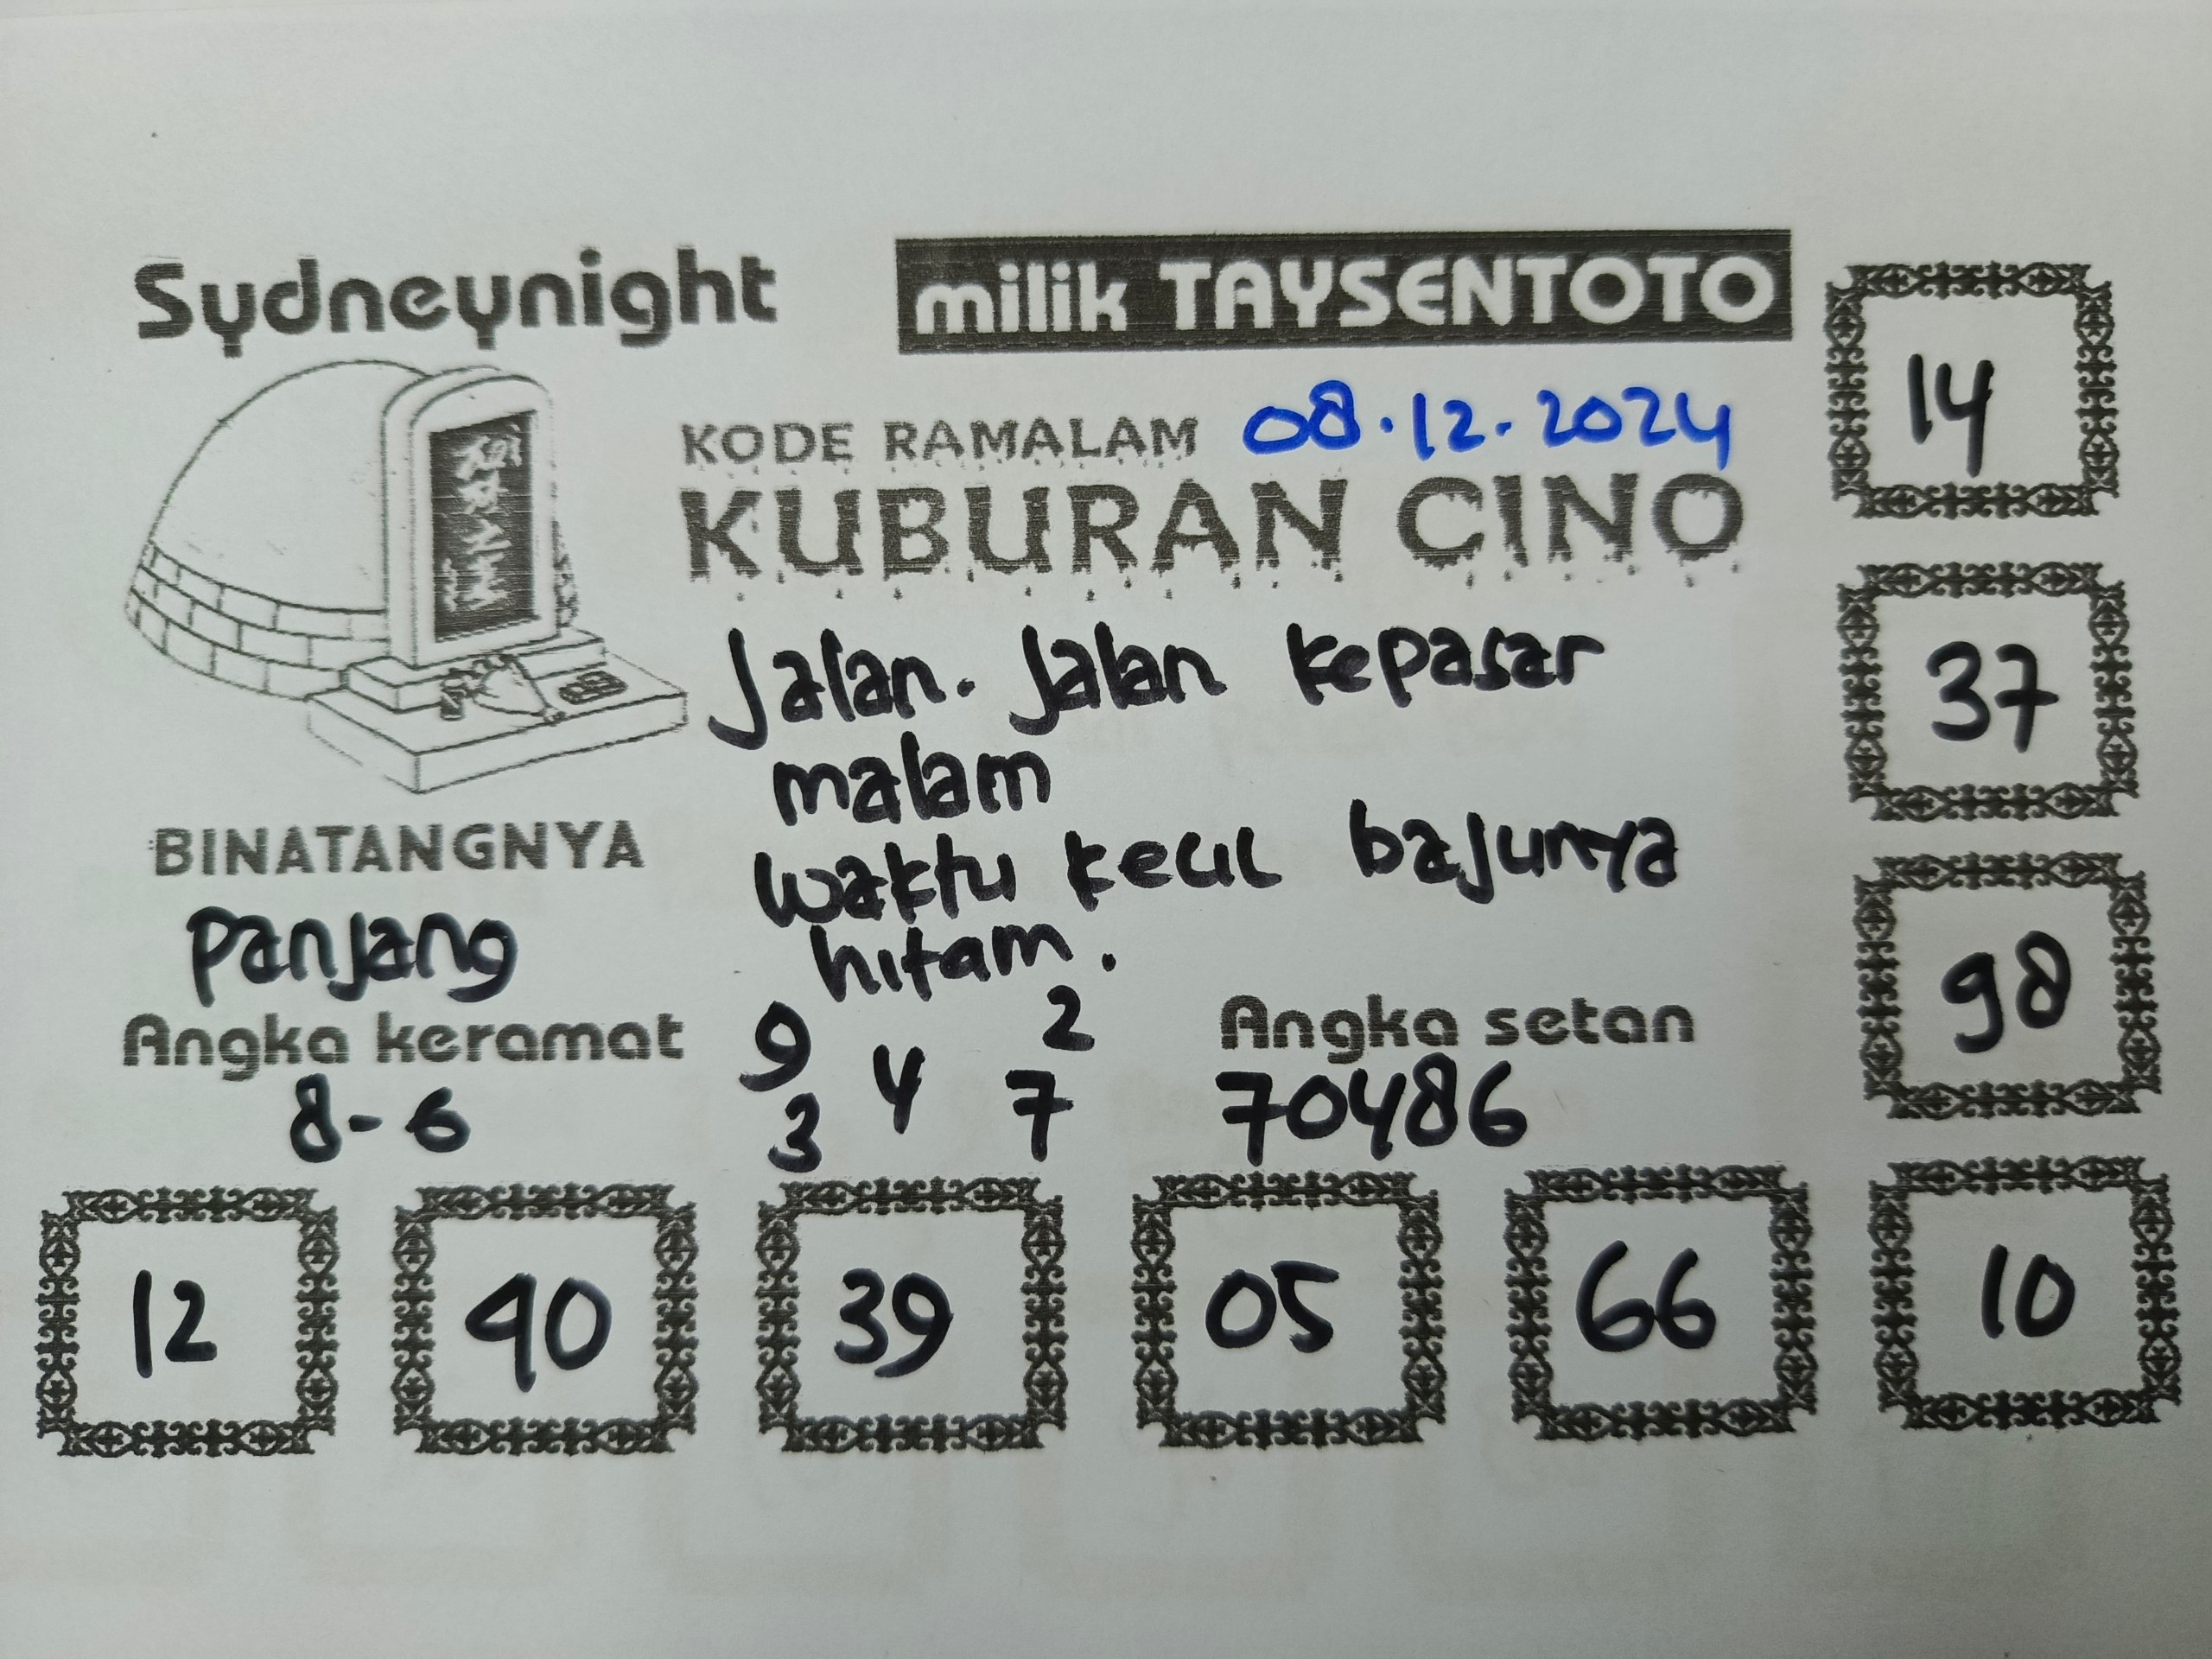 Sydneynight
milik TAYSENTOTO
KODE RAMALAM 08.12.2024
KUBURAN CINO
Jalan. Jalan kepasar
malam
waktu kecil bajunya
hitam.
BINATANGNYA
Panjang
Angka keramat
8-6
9 2
4
3 7
Angka setan
70486
14
37
98
12 40 39 05 66 10